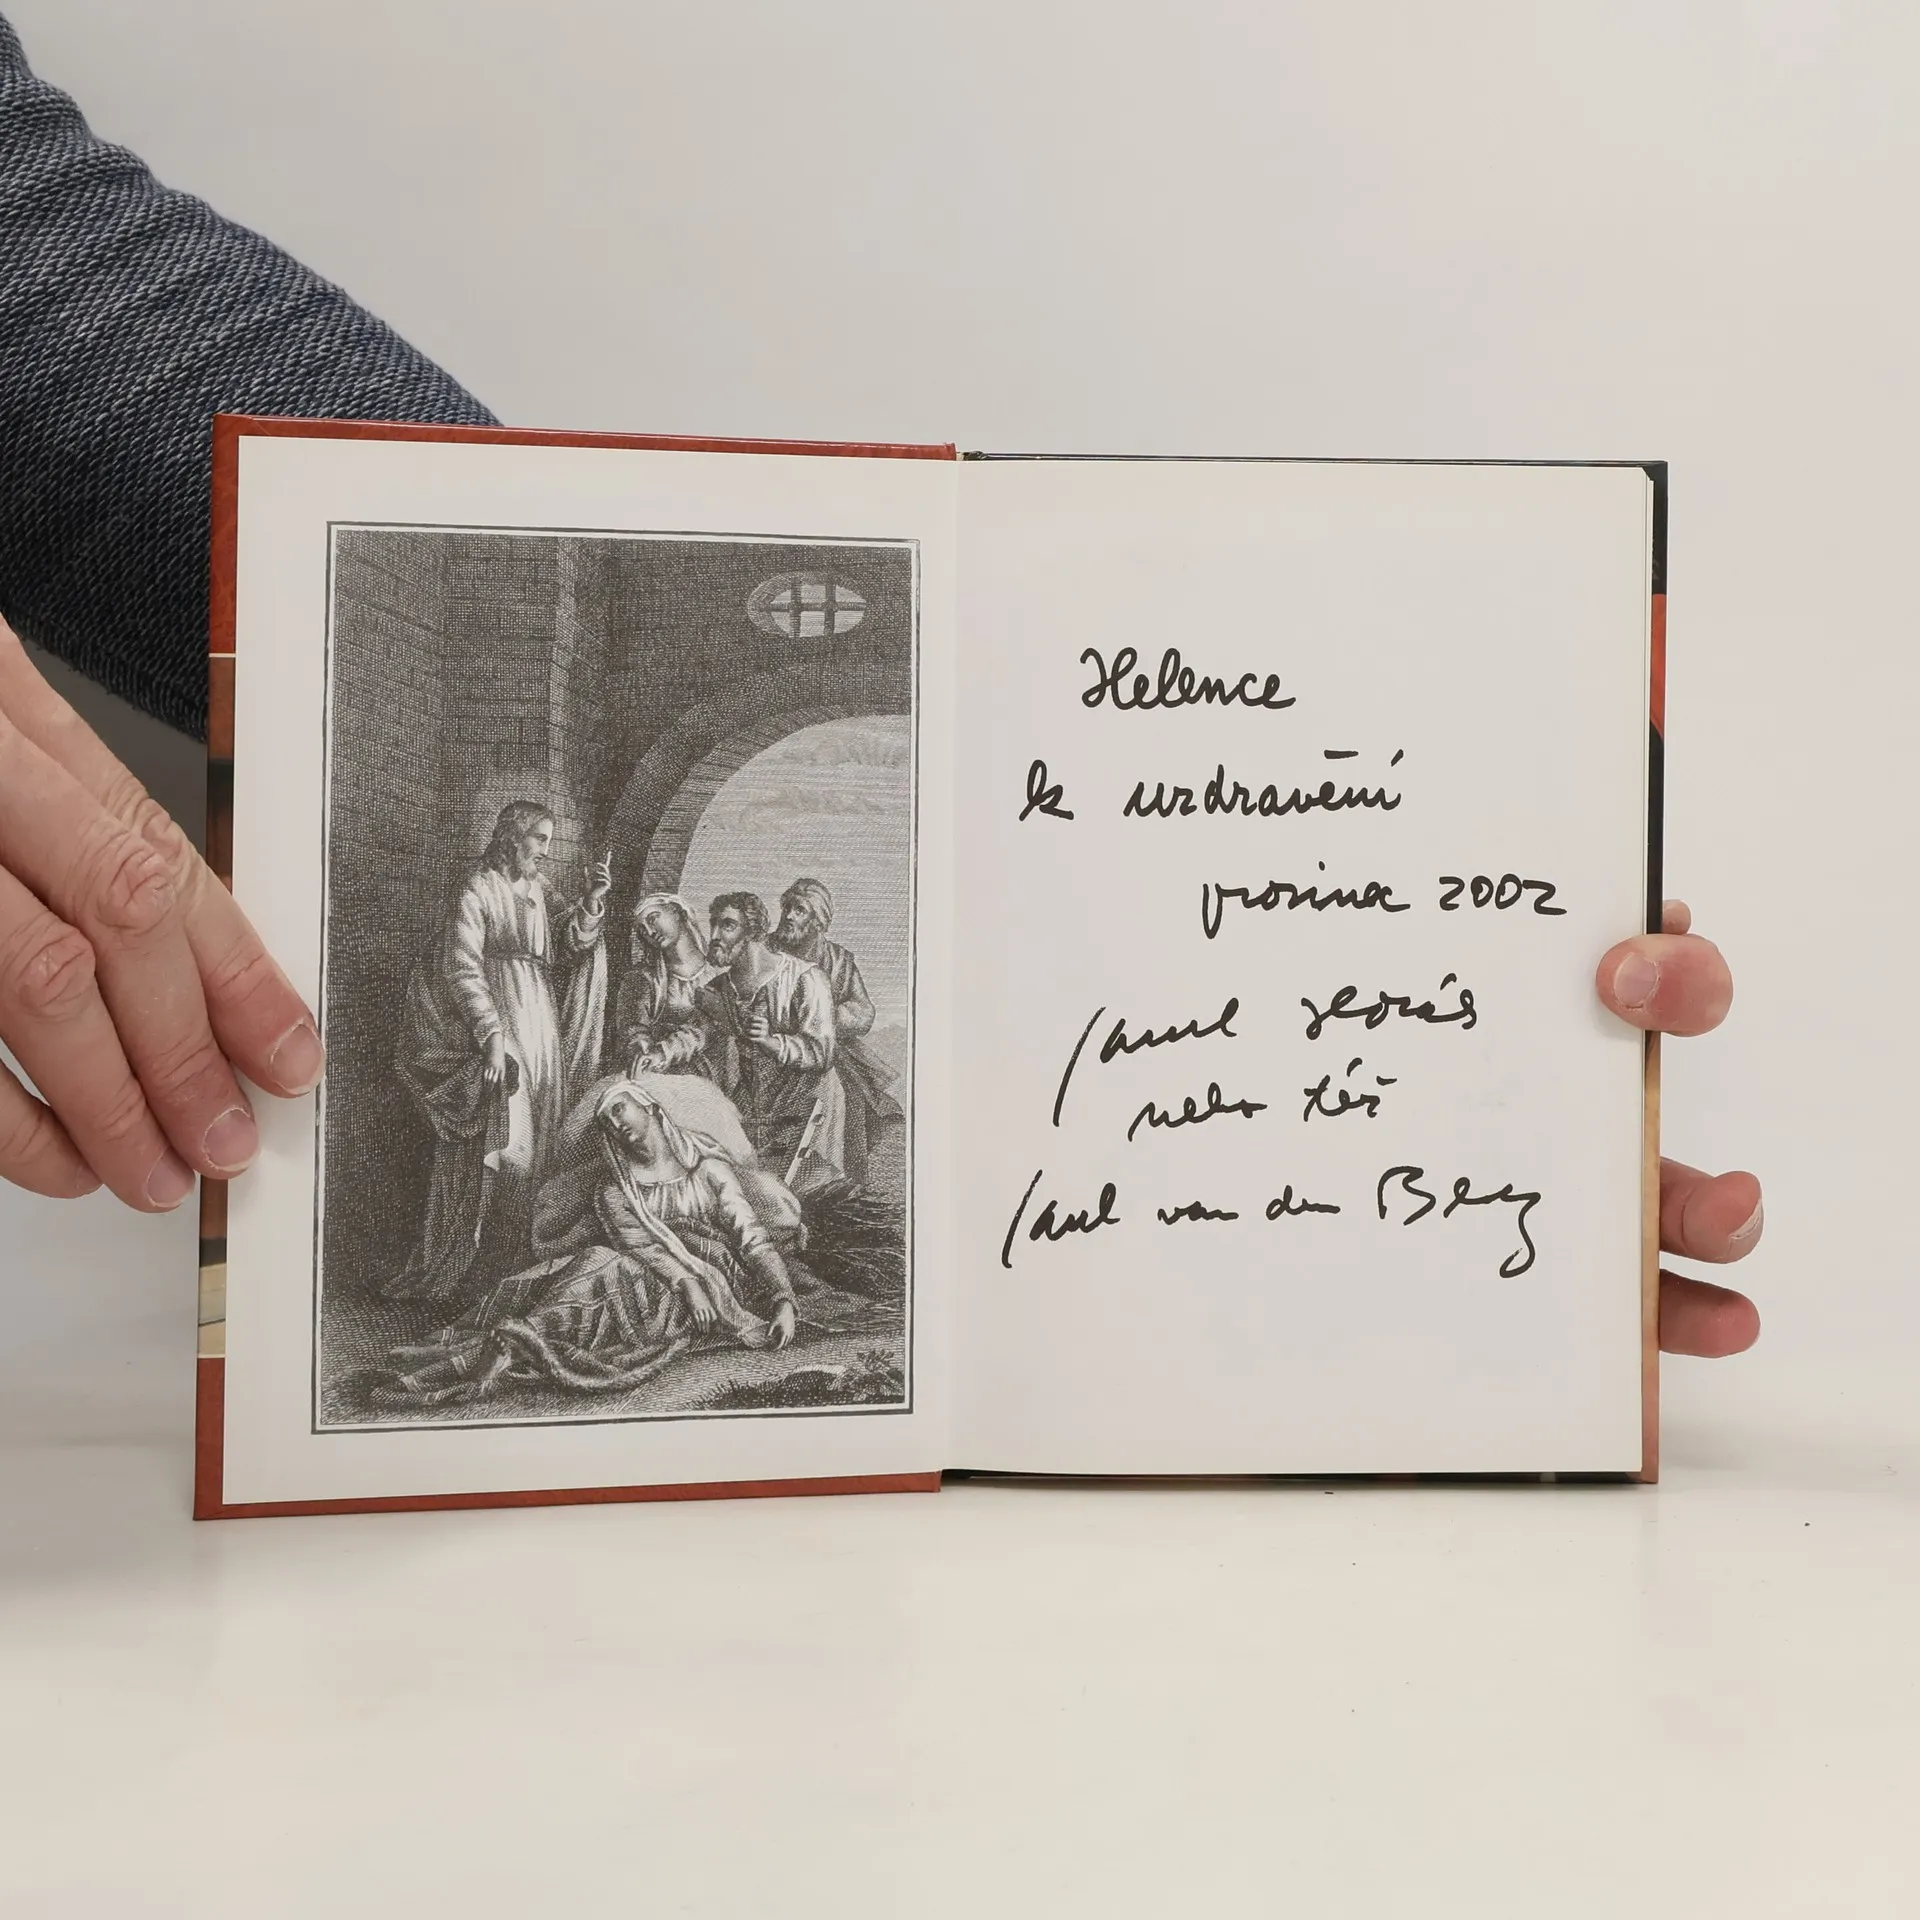 Helence
k uzdravění
prosinec 2002
Paul
nebo též
Paul van den Berg